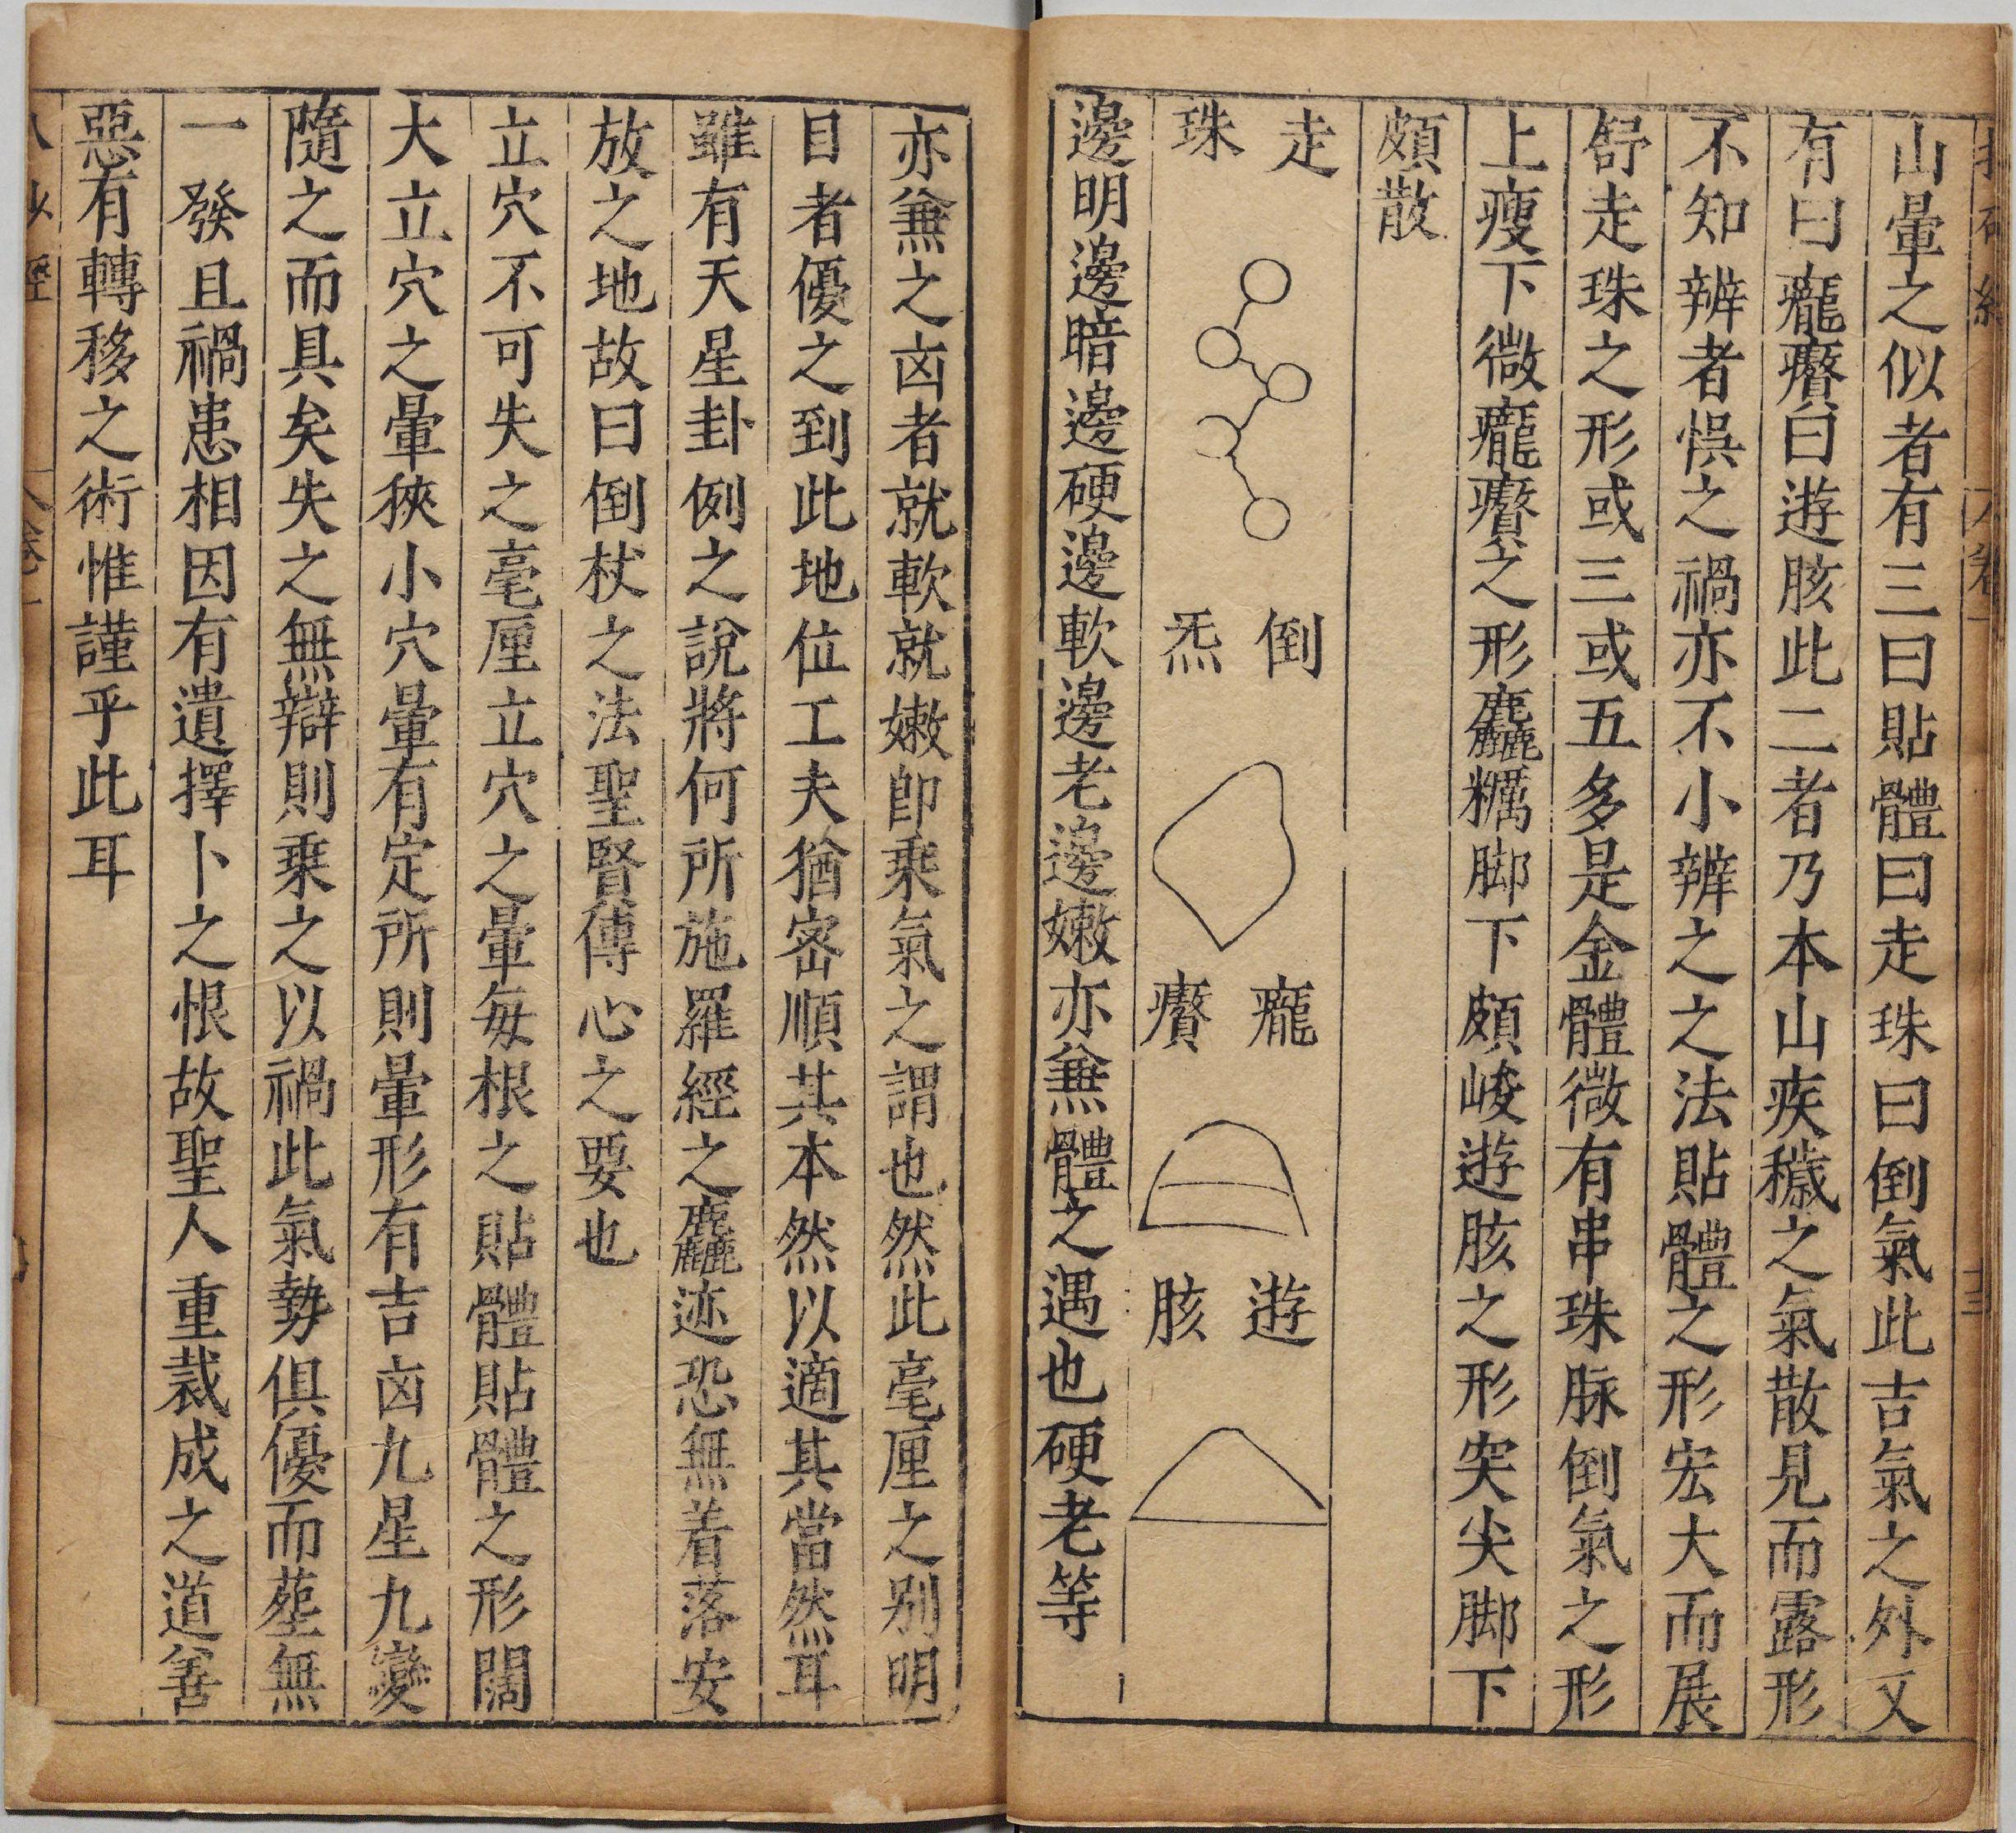 山暈之似者有三曰貼體曰走珠曰倒氣此吉氣之外又
有曰癯癠曰遊胲此二者乃本山疾穢之氣散見而露形
不知辨者悞之禍亦不小辨之之法貼體之形宏大而展
舒走珠之形或三或五多是金體微有串珠脉倒氣之形
上瘦下微之形麤糲脚下頗峻遊胲之形突尖脚下
頗散
走珠
倒炁
遊胲
邊明邊暗邊硬邊軟邊老邊嫩亦兼體之遇也硬老等
亦兼之凶者就軟就嫩卽乘氣之謂也然此毫厘之别明
目者優之到此地位工夫猶宻順其本然以適其當然耳
雖有天星卦例之說將何所施羅經之麤迹恐無着落安
放之地故曰倒杖之法聖賢傳心之要也
立穴不可失之毫厘立穴之暈每根之貼體貼體之形闊
大立穴之暈狹小穴暈有定所則暈形有吉凶九星九變
隨之而具矣失之無辯則乗之以禍此氣勢俱優而塟無
一發且禍患相因有遺擇卜之恨故聖人重裁成之道善
惡有轉移之術惟謹乎此耳